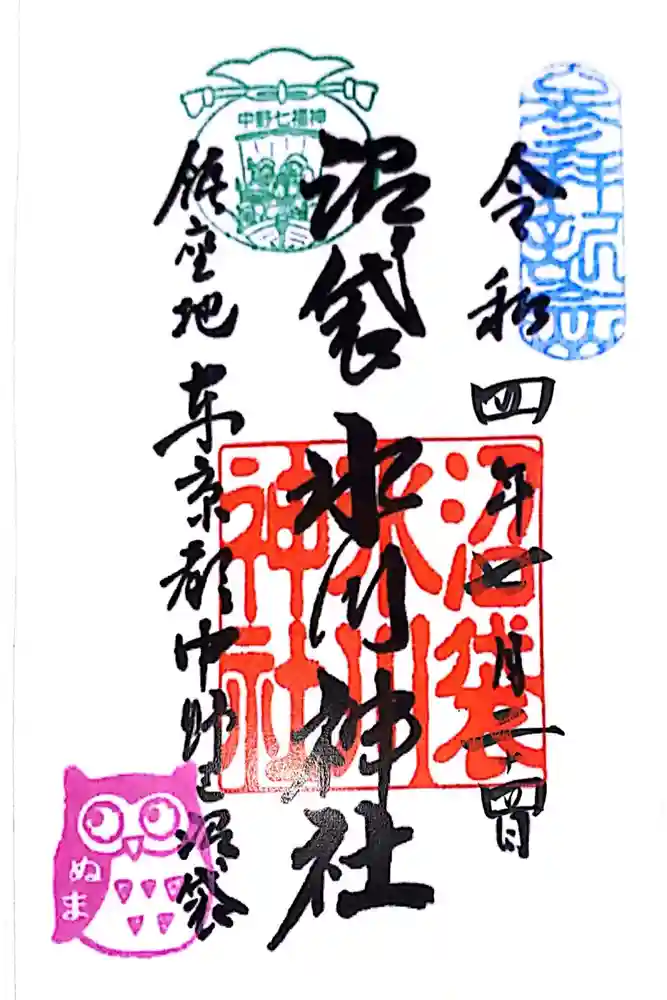 令和四年七月二十四日
中野七福神
沼袋氷川神社
沼袋
氷川
神社
鎮座地東京都中野区沼袋
ぬま